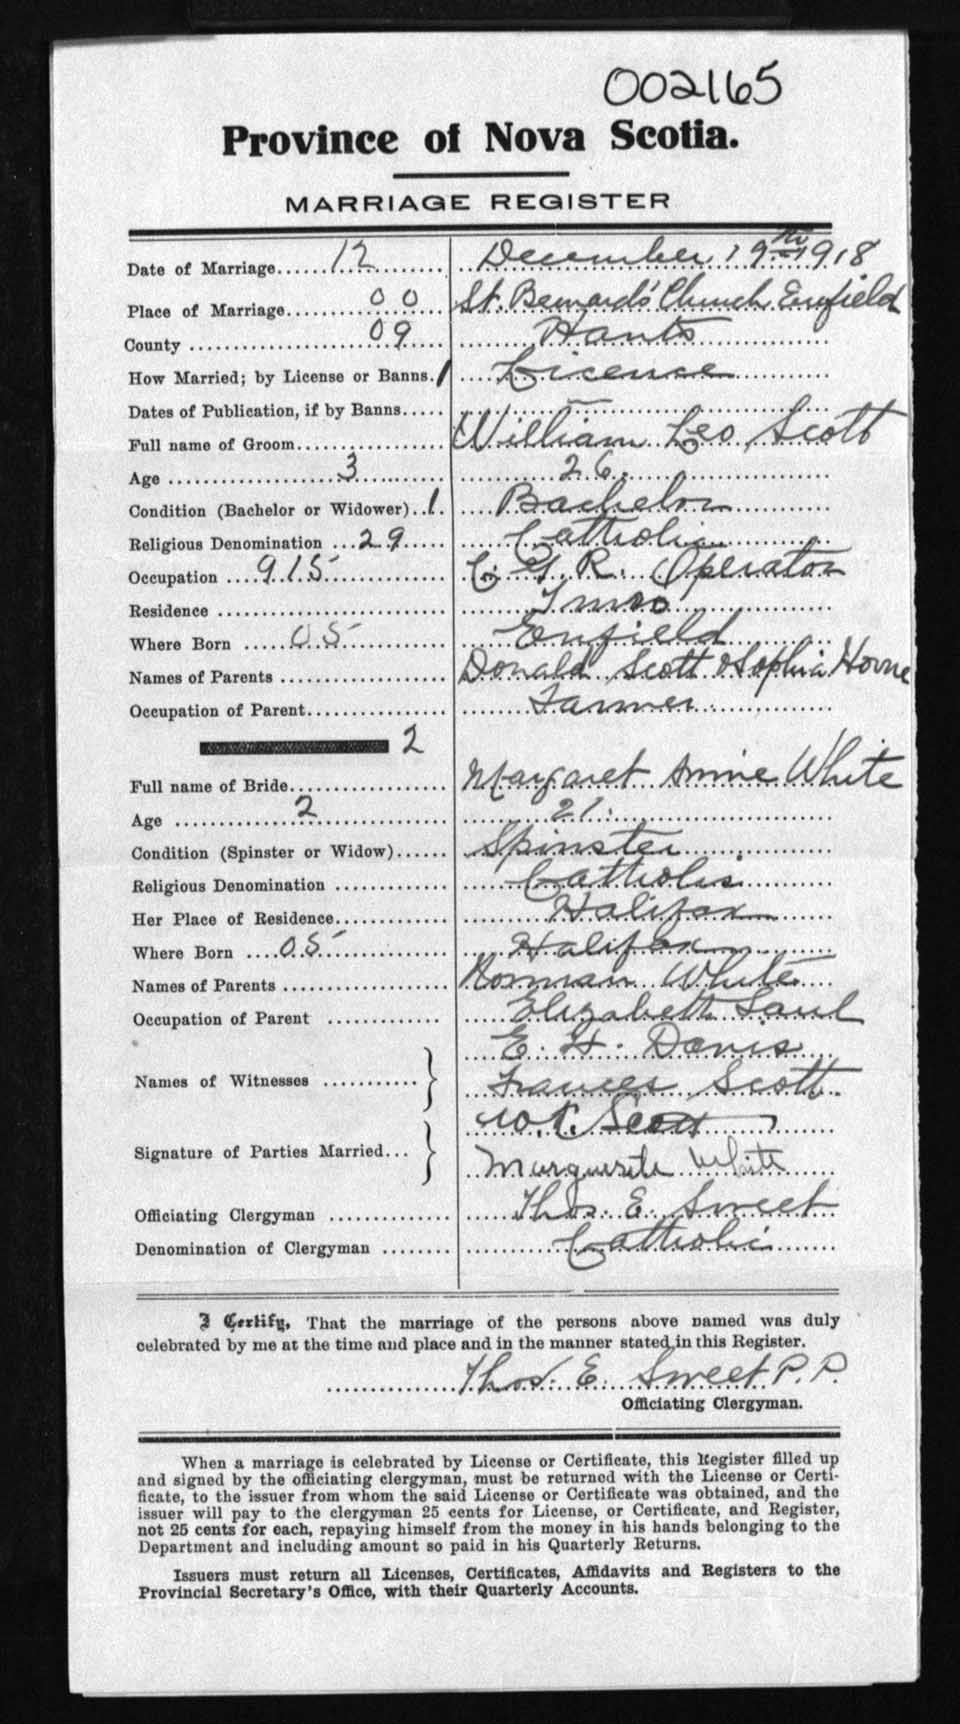 002165
Province of Nova Scotia.
MARRIAGE REGISTER
Date of Marriage......12........ December 19th 1918
Place of Marriage...00... St. Bernard's Church Enfield
County ...09... Hants
How Married; by License or Banns. 1 Licence
Dates of Publication, if by Banns..... —
Full name of Groom................ William Leo Scott
Age ...3... 26.
Condition (Bachelor or Widower)..1. Bachelor
Religious Denomination ...29..... Catholic
Occupation ....915... C. G. R. Operator
Residence ........
Where Born .....05... Enfield
Names of Parents ................. Donald Scott & Sophia Horne
Occupation of Parent.............. Farmer
2
Full name of Bride................ Margaret Annie White
Age ...2... 21.
Condition (Spinster or Widow)...... Spinster
Religious Denomination ............ Catholic
Her Place of Residence............ Halifax
Where Born ....05... Halifax
Names of Parents ................. Norman White
Occupation of Parent ............. Elizabeth Saul
E. H. Davis
Names of Witnesses ........... } Frances Scott.
W. L. Scott
Signature of Parties Married... } Marguerite White
Officiating Clergyman ............. Thos. E. Sweet
Denomination of Clergyman ........ Catholic
I Certify, That the marriage of the persons above named was duly
celebrated by me at the time and place and in the manner stated in this Register.
Thos. E. Sweet P. P.
Officiating Clergyman.
When a marriage is celebrated by License or Certificate, this Register filled up
and signed by the officiating clergyman, must be returned with the License or Certi-
ficate, to the issuer from whom the said License or Certificate was obtained, and the
issuer will pay to the clergyman 25 cents for License, or Certificate, and Register,
not 25 cents for each, repaying himself from the money in his hands belonging to the
Department and including amount so paid in his Quarterly Returns.
Issuers must return all Licenses, Certificates, Affidavits and Registers to the
Provincial Secretary's Office, with their Quarterly Accounts.